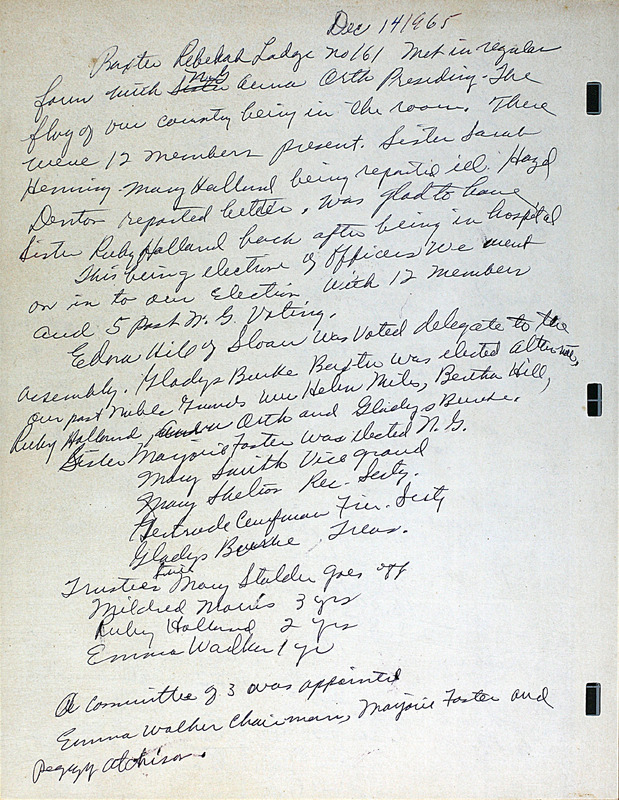 Dec 14 1965
Baxter Rebekah Lodge no 161 Met in regular
form with Sister N.G. Anna Orth Presiding. The
flag of our country being in the room. There
were 12 members present. Sister Sarah
Henning - Mary Halland being reported ill. Hazel
Denton reported better. was glad to have
Sister Ruby Holland back after being in hospital
This being election of officers We went
on in to our Election, With 12 Members
and 5 Past N. G. Voting.
Edna Hill of Sloan was Voted delegate to the
assembly. Gladys Burke Baxter was elected alternate,
our past Noble Grands were Helen Miles, Bertha Hill,
Ruby Holland, Anna Orth and Gladys Burke.
Sister Marjorie Foster was elected N. G.
Mary Smith Vice grand
Mary Shelton Rec. Secty.
Gertrude Caufman Fin. Secty
Gladys Bourke Treas.
Trustees Mary Stalder goes off
Mildred Morris 3 yrs
Ruby Holland 2 yrs
Emma Walker 1 yr
A committee of 3 was appointed
Emma Walker Chairman, Marjorie Foster and
Peggy Atchison.